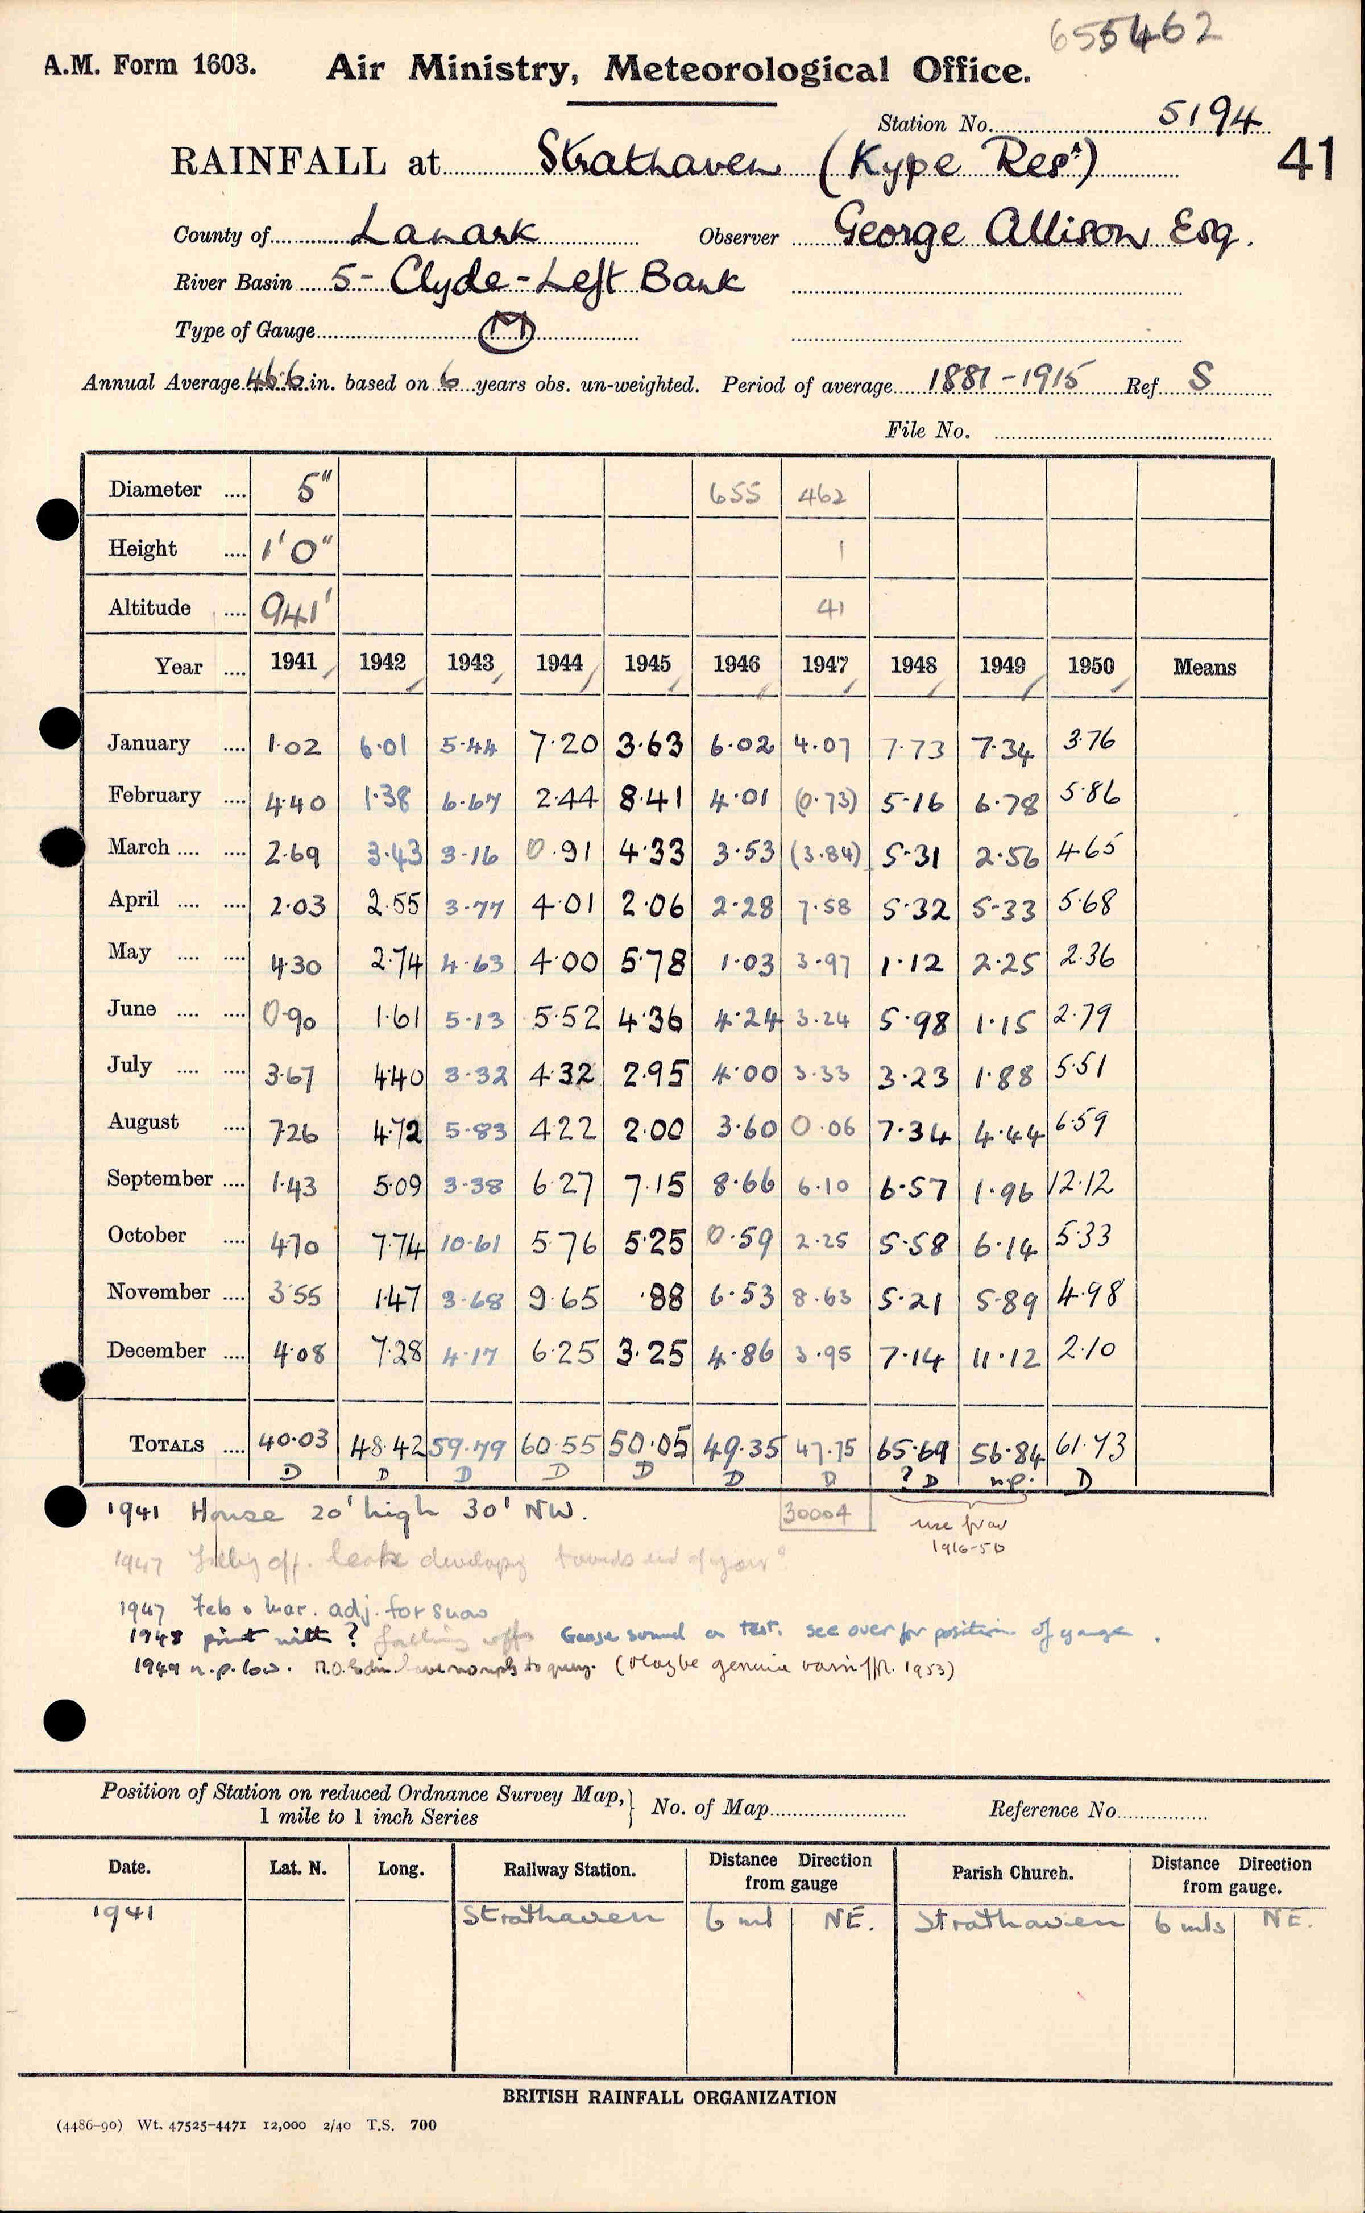 655462
A.M. Form 1603. Air Ministry, Meteorological Office.
Station No. 5194
RAINFALL at Strathaven (Kype Resr) 41
County of Lanark Observer George Allison Esq.
River Basin 5 - Clyde - Left Bank
Type of Gauge M
Annual Average 46.6 in. based on 6 years obs. un-weighted. Period of average 1881-1915 Ref. S
File No.
Diameter .... 5" 655 462
Height .... 1'0" 1
Altitude .... 941' 41
Year .... 1941 1942 1943 1944 1945 1946 1947 1948 1949 1950 Means
January .... 1.02 6.01 5.44 7.20 3.63 6.02 4.07 7.73 7.34 3.76
February .... 4.40 1.38 6.67 2.44 8.41 4.01 (0.73) 5.16 6.78 5.86
March .... .... 2.69 3.43 3.16 0.91 4.33 3.53 (3.84) 5.31 2.56 4.65
April .... .... 2.03 2.55 3.77 4.01 2.06 2.28 7.58 5.32 5.33 5.68
May .... .... 4.30 2.74 4.63 4.00 5.78 1.03 3.97 1.12 2.25 2.36
June .... .... 0.90 1.61 5.13 5.52 4.36 4.24 3.24 5.98 1.15 2.79
July .... .... 3.67 4.40 3.32 4.32 2.95 4.00 3.33 3.23 1.88 5.51
August .... 7.26 4.72 5.83 4.22 2.00 3.60 0.06 7.34 4.44 6.59
September .... 1.43 5.09 3.38 6.27 7.15 8.66 6.10 6.57 1.96 12.12
October .... 4.70 7.74 10.61 5.76 5.25 0.59 2.25 5.58 6.14 5.33
November .... 3.55 1.47 3.68 9.65 .88 6.53 8.63 5.21 5.89 4.98
December .... 4.08 7.28 4.17 6.25 3.25 4.86 3.95 7.14 11.12 2.10
TOTALS .... 40.03 48.42 59.79 60.55 50.05 49.35 47.75 65.69 56.84 61.73
D D D D D D D ? D n.p. D
1941 House 20' high 30' NW. 30004 use for
1916-50
1947 Falling off. leak developing towards end of year
1947 Feb & Mar. adj. for snow
1948 falling off Gauge sound on test. see over for position of gauge.
1949 n.p. low. M.O. Edin have no to query. (Maybe genuine 1953)
Position of Station on reduced Ordnance Survey Map, } No. of Map Reference No.
1 mile to 1 inch Series
Date. Lat. N. Long. Railway Station. Distance Direction from gauge Parish Church. Distance Direction from gauge.
1941 Strathaven 6 ml NE. Strathaven 6 mls NE.
BRITISH RAINFALL ORGANIZATION
(4486-90) Wt. 47525-4471 12,000 2/40 T.S. 700